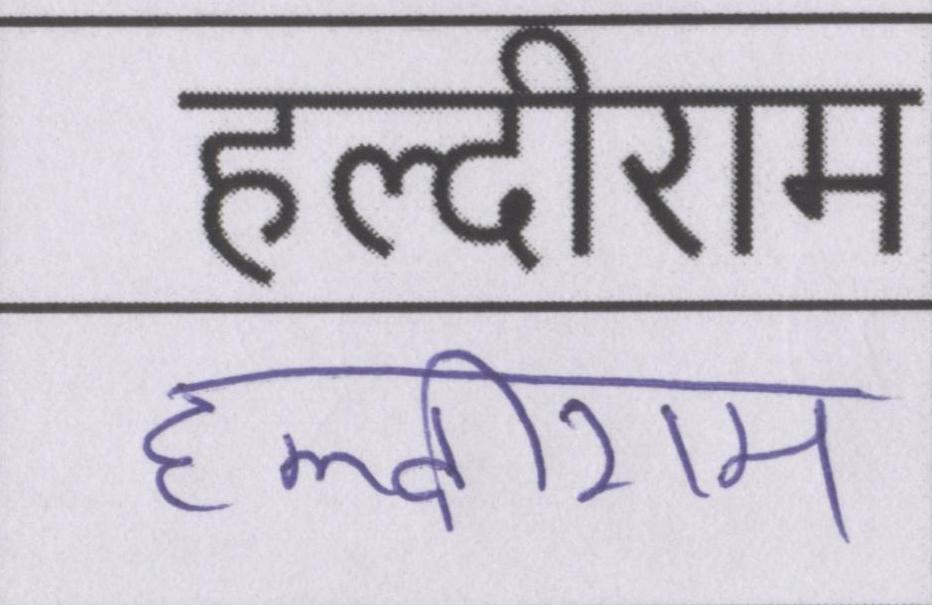 हल्दीराम
हल्दीराम